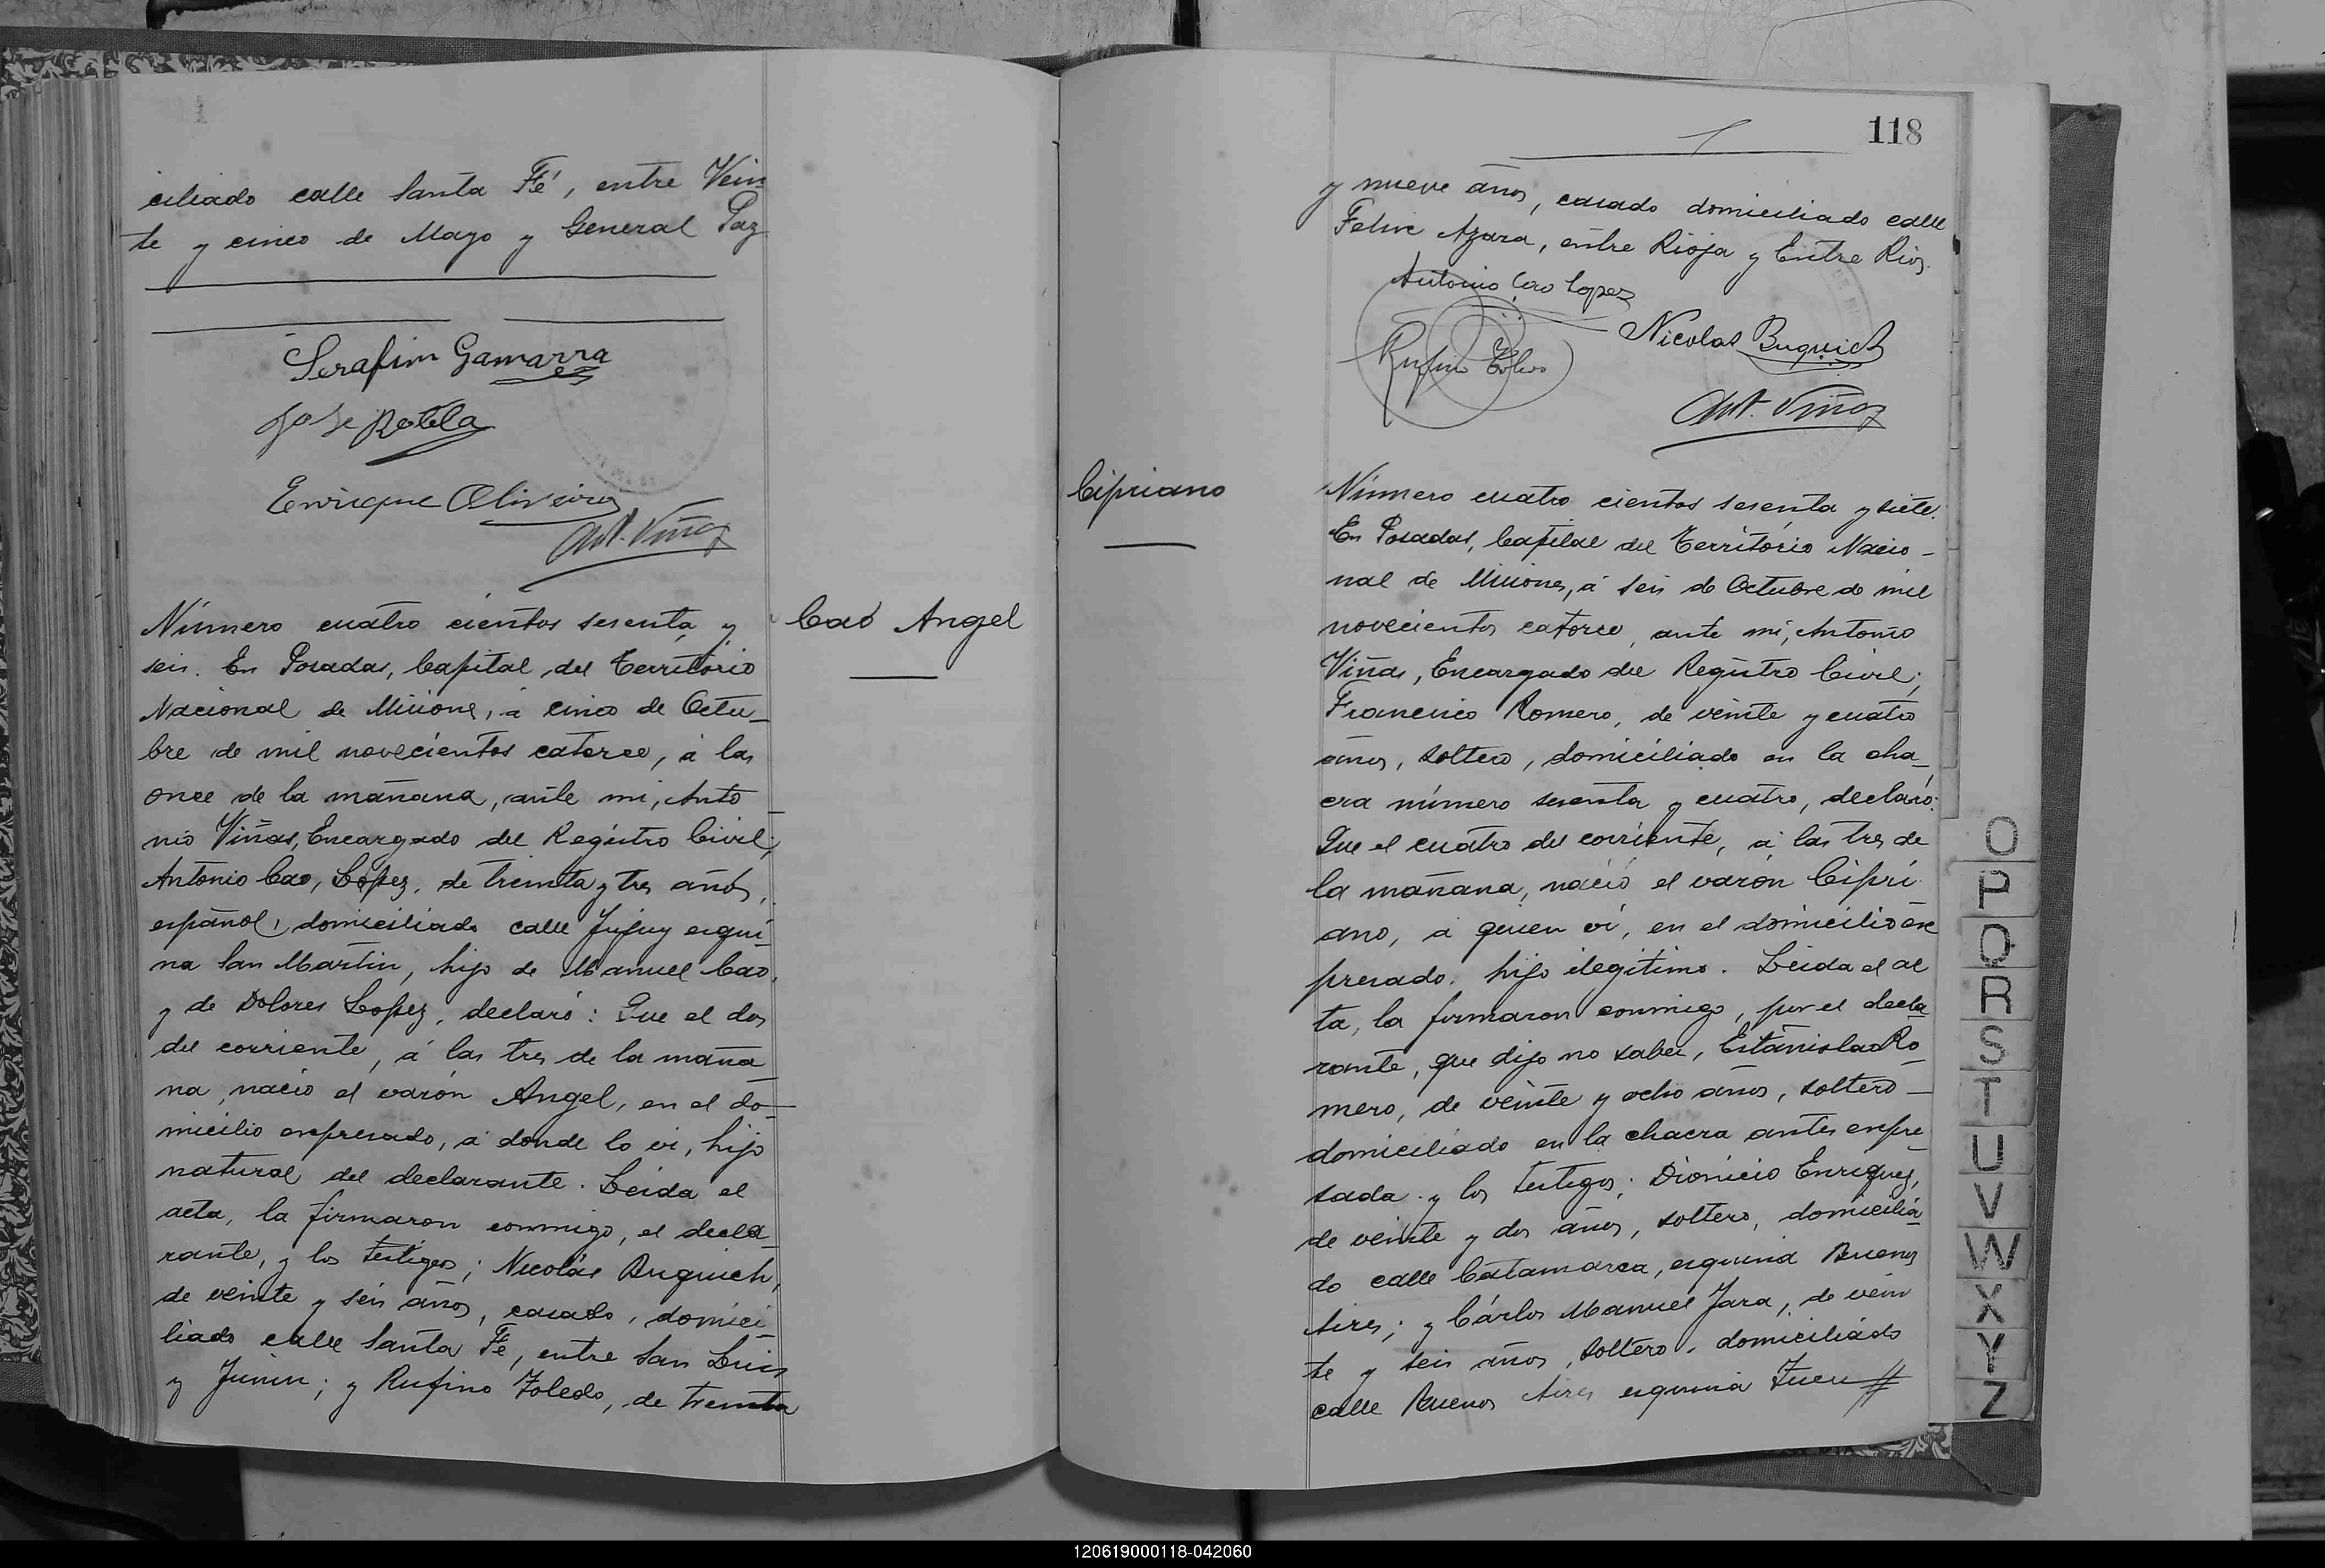 ciliado calle Santa Fé, entre Vein
te y cinco de Mayo y General Paz
Serafim Gamarra
José Rotela
Enrique Oliveira
Ant. Viñas
Número cuatro cientos sesenta y
seis. En Posadas, Capital, del Território
Nacional de Misiones, á cinco de Octu_
bre de mil novecientos catorce, á las
once de la mañana, ante mi, Anto_
nio Viñas, Encargado del Registro Civil;
Antonio Cao, Lopez, de treinta y tres años,
español, domiciliado calle Jujuy esqui_
na San Martin, hijo de Manuel Cao,
y de Dolores Lopez, declaró: Que el dos
del corriente, á las tres de la maña_
na, nació el varón Angel, en el do_
micilio expresado, á donde lo vi, hijo
natural del declarante. Leida el
acta, la firmaron conmigo, el decla_
rante, y los testigos; Nicolás Buquich,
de veinte y seis años, casado, domici_
liado calle Santa Fé, entre San Luis
y Junin; y Rufino Toledo, de treinta
Cao Angel
118
y nueve años, casado domiciliado calle
Felix Azara, entre Rioja y Entre Rios.
Antonio Cao Lopez
Nicolas Buquich
Rufino Toledo
Ant. Viñas
Cipriano
Número cuatro cientos sesenta y siete.
En Posadas, Capital del Território Nacio_
nal de Misiones, á seis de Octubre de mil
novecientos catorce, ante mi, Antonio
Viñas, Encargado del Registro Civil;
Francisco Romero, de veinte y cuatro
años, soltero, domiciliado en la cha_
cra número sesenta y cuatro, declaró:
Que el cuatro del corriente, á las tres de
la mañana, nació el varón Cipri_
ano, á quien vi, en el domicilio ex
presado. hijo ilegitimo. Leida el ac
ta, la firmaron conmigo, por el decla_
rante, que dijo no saber, Estanislao Ro_
mero, de veinte y ocho años, soltero_
domiciliado en la chacra antes expre_
sada. y los testigos; Dionicio Enriquez,
de veinte y dos años, soltero, domicilia_
do calle Catamarca, esquina Buenos
Aires; y Cárlos Manuel Jara, de vein
te y seis años, soltero, domiciliado
calle Buenos Aires esquina Tucu
O
P
Q
R
S
T
U
V
W
X
Y
Z
120619000118-042060